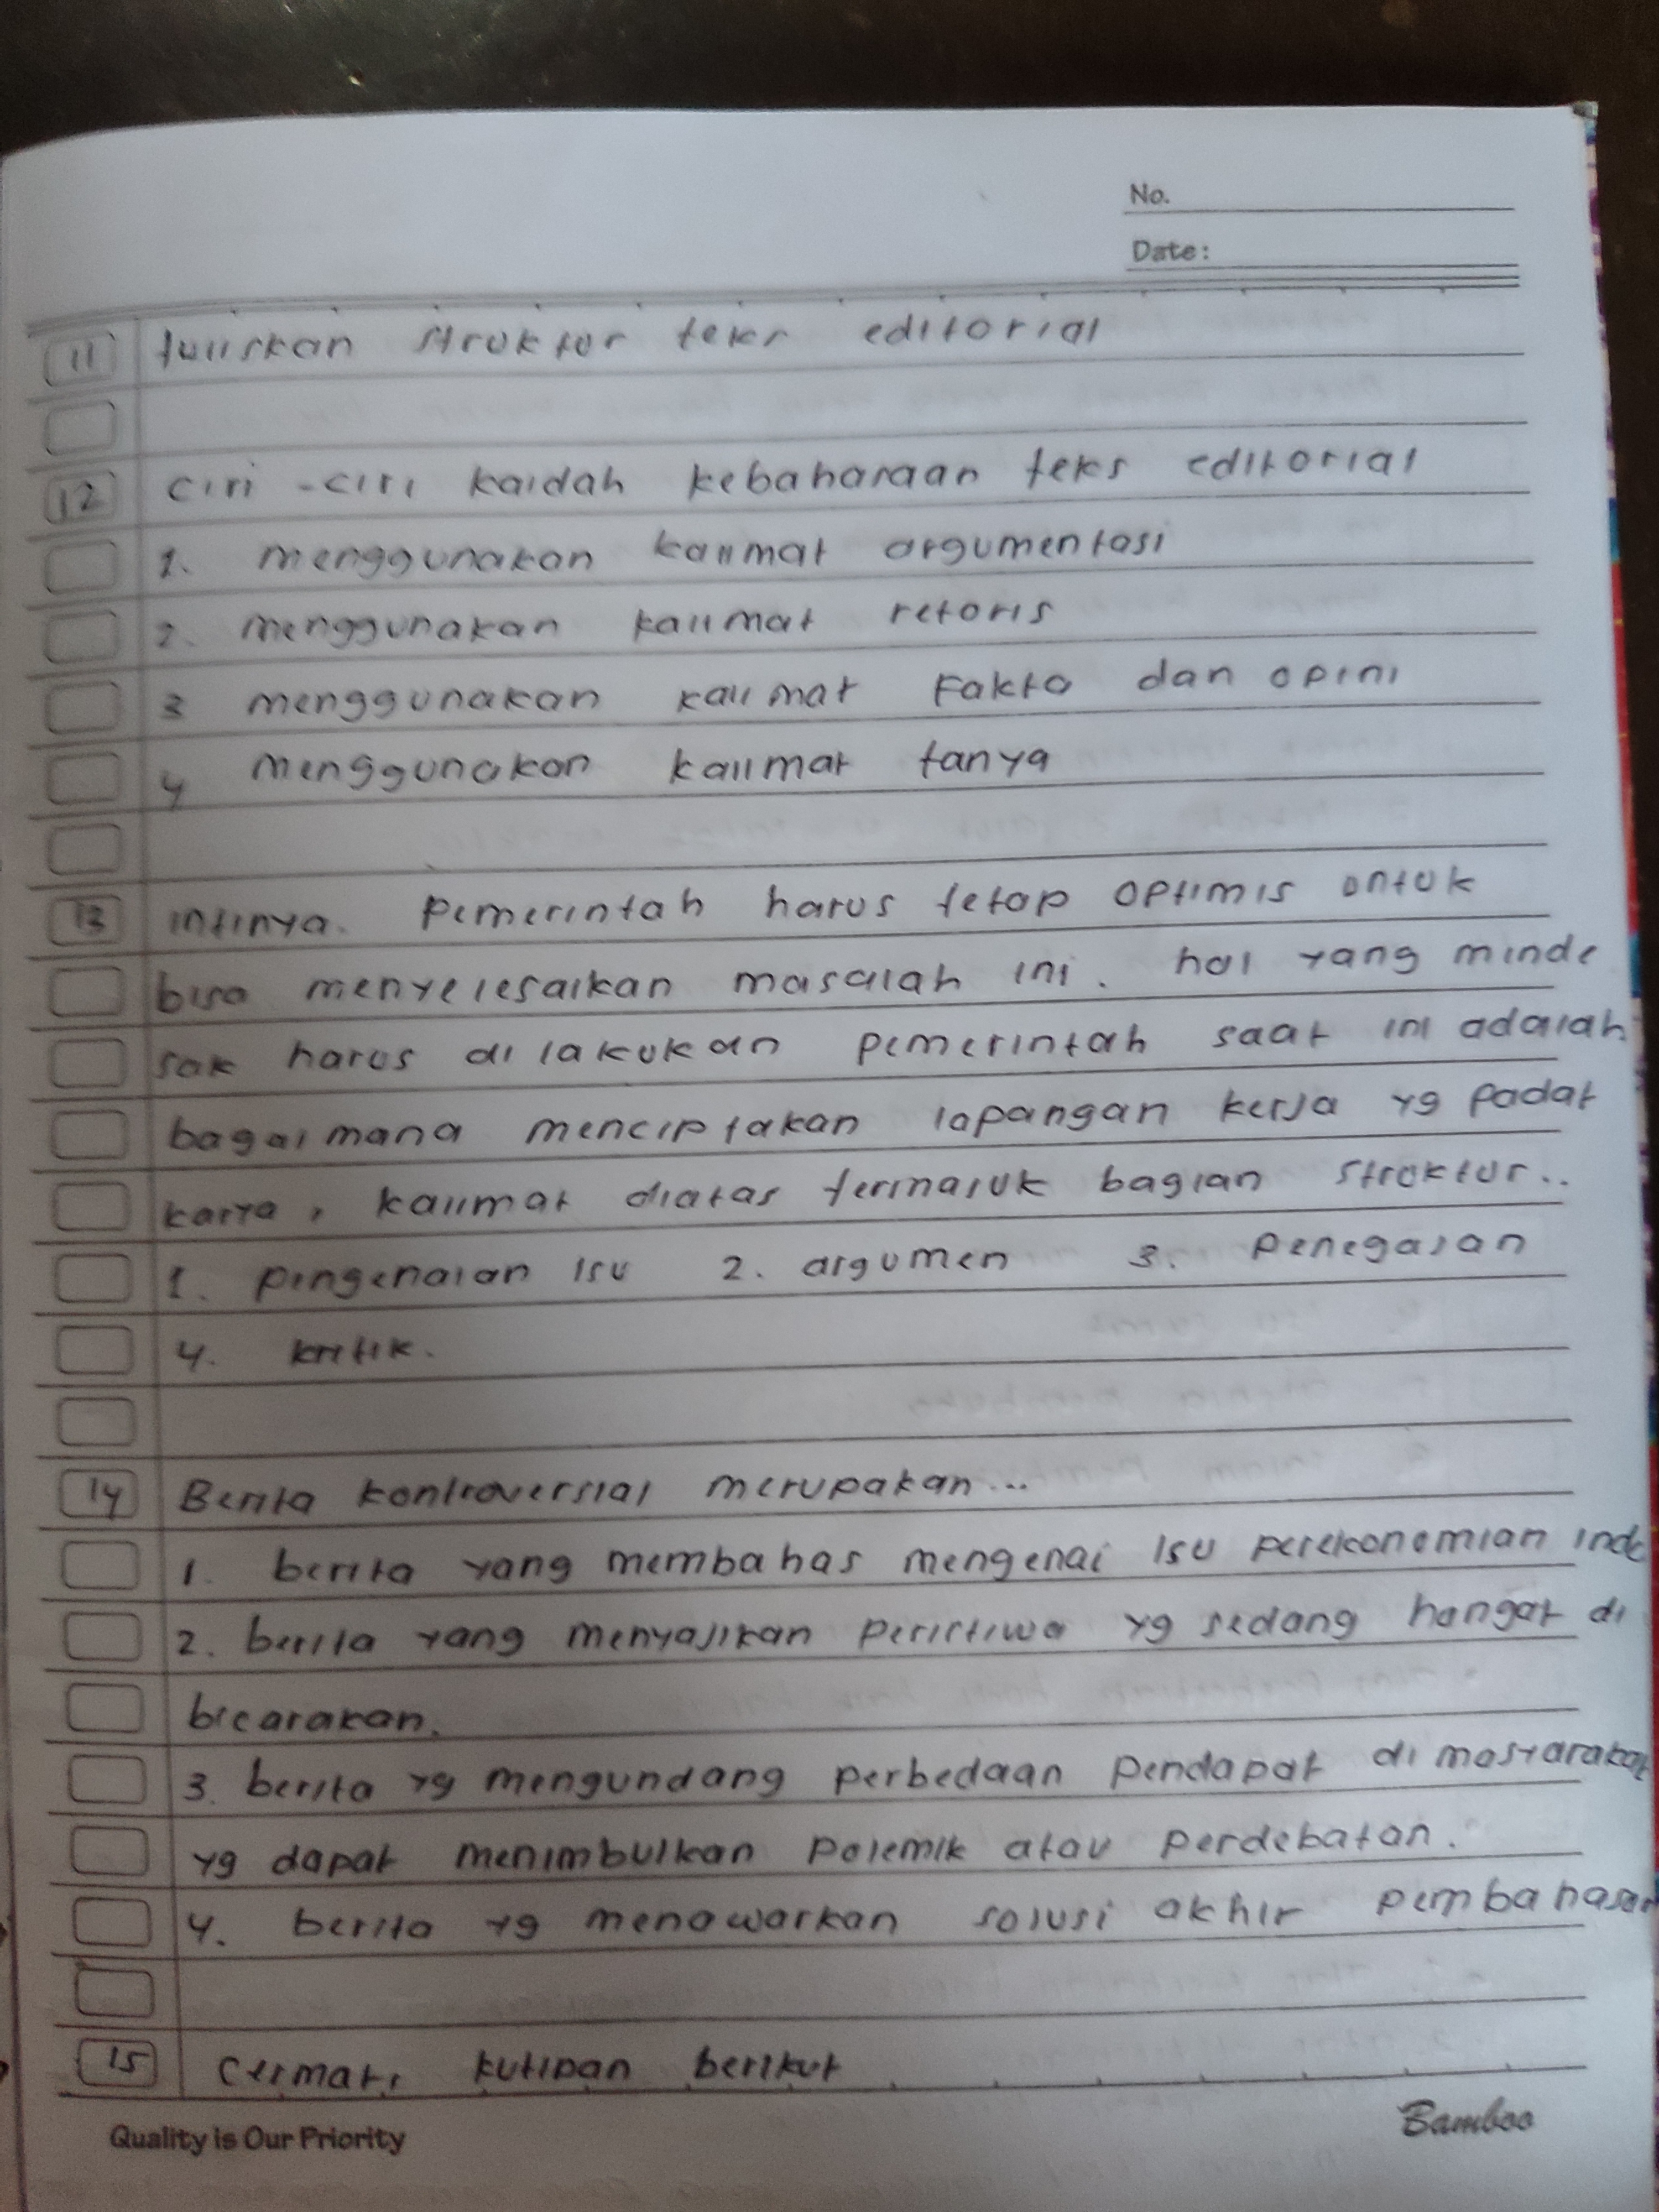 No.
Date:
11 tuliskan struktur teks editorial
12 ciri-ciri kaidah kebahasaan teks editorial
1. menggunakan kalimat argumentasi
2. menggunakan kalimat retoris
3 menggunakan kalimat Fakta dan opini
4 menggunakan kalimat tanya
13 intinya. Pemerintah harus tetap optimis untuk
bisa menyelesaikan masalah ini. hal yang minde
sak harus di lakukan pemerintah saat ini adalah
bagaimana menciptakan lapangan kerja yg padat
karya, kalimat diatas termasuk bagian struktur..
1. pengenalan isu 2. argumen 3. Penegasan
4. kritik.
14 Berita kontroversial merupakan...
1. berita yang membahas mengenai isu perekonomian indo
2. berita yang menyajikan peristiwa yg sedang hangat di
bicarakan.
3. berita yg mengundang perbedaan pendapat di masyarakat
yg dapat menimbulkan polemik atau perdebatan.
4. berita yg menawarkan solusi akhir pembahasan
15 Cermati kutipan berikut
Quality is Our Priority
Bamboo